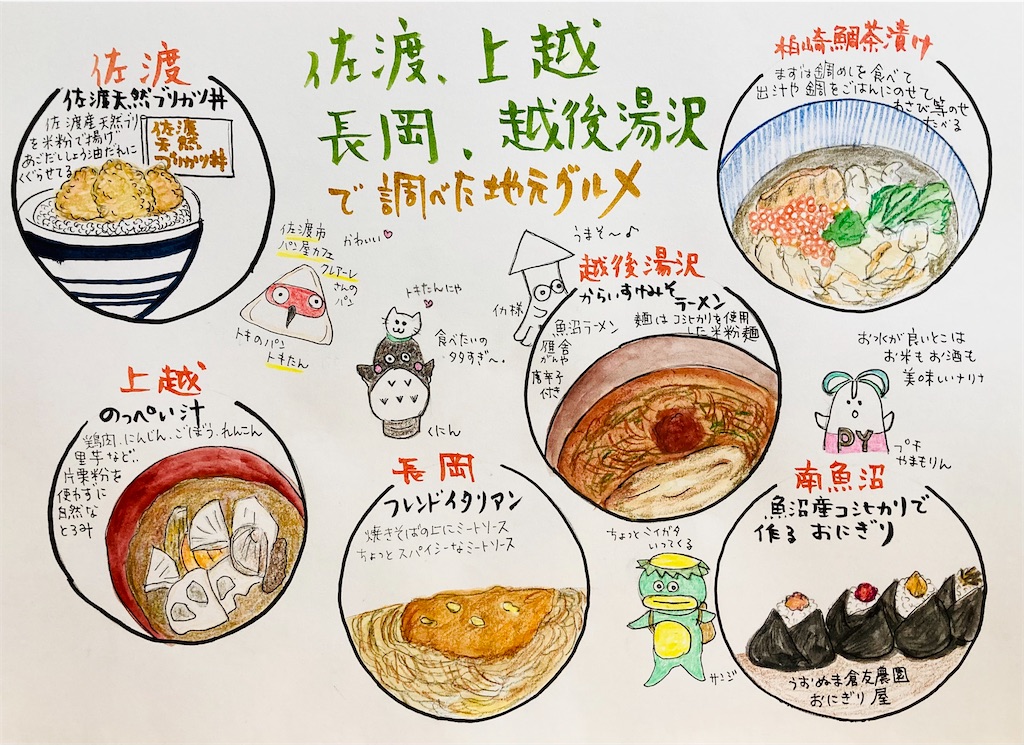 佐渡、上越
長岡、越後湯沢
で調べた地元グルメ
佐渡
佐渡天然ブリカツ丼
佐渡産天然ブリ
を米粉で揚げ、
あごだししょう油だれに
くぐらせてる
佐渡
天然
ブリカツ丼
柏崎鯛茶漬け
まずは鯛めしを食べて
出汁や鯛をごはんにのせて
わさび等のせ
たべる
佐渡市
パン屋カフェ
クレアーレ
さんの
パン
かわいい
トキのパン
トキたん
トキたんにゃ
食べたいの
タタすぎ〜。
くにん
うまそ〜♪
イカ様
越後湯沢
からいすけみそ
ラーメン
魚沼ラーメン
麺はコシヒカリを使用
した米粉麺
雁舎
がんや
唐辛子
付き
お水が良いとこは
お米もお酒も
美味しいナリナ
PY
プチ
やまもりん
上越
のっぺい汁
鶏肉、にんじん、ごぼう、れんこん
里芋など、
片栗粉を
使わずに
自然な
とろみ
長岡
フレンドイタリアン
焼きそばの上にミートソース
ちょっとスパイシーなミートソース
ちょっとニイガタ
いってくる
サンジ
南魚沼
魚沼産コシヒカリで
作る おにぎり
うおぬま倉友農園
おにぎり屋